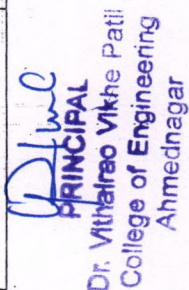 PRINCIPAL
Dr. Vithalrao Vikhe Patil
College of Engineering
Ahmednagar